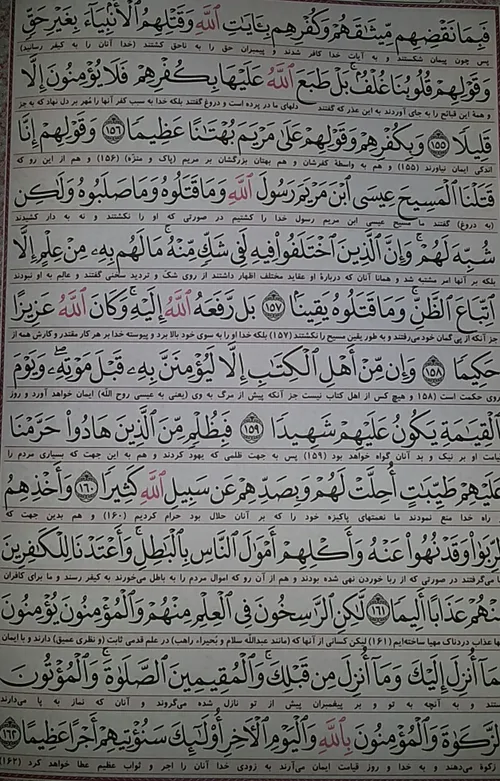 فَبِمَا نَقْضِهِم مِّيثَٰقَهُمْ وَكُفْرِهِم بِـَٔايَٰتِ اللَّهِ وَقَتْلِهِمُ الْأَنۢبِيَآءَ بِغَيْرِ حَقٍّ
پس چون پیمان شکستند و به آیات خدا کافر شدند و پیمبران حق را به ناحق کشتند (خدا آنان را به کیفر رسانید)
وَقَوْلِهِمْ قُلُوبُنَا غُلْفٌۢ ۚ بَلْ طَبَعَ اللَّهُ عَلَيْهَا بِكُفْرِهِمْ فَلَا يُؤْمِنُونَ إِلَّا
و همهٔ این قبائح را به جای آوردند به این عذر که گفتند دلهای ما در پرده است و دروغ گفتند بلکه خدا به سبب کفر آنها را مُهر بر دل نهاد که به جز
قَلِيلًا ﴿١٥٥﴾ وَبِكُفْرِهِمْ وَقَوْلِهِمْ عَلَىٰ مَرْيَمَ بُهْتَٰنًا عَظِيمًا ﴿١٥٦﴾ وَقَوْلِهِمْ إِنَّا
اندکی ایمان نیاورند (۱۵۵) و هم به واسطهٔ کفرشان و هم بهتان بزرگشان بر مریم (پاک و منزّه) (۱۵۶) و هم از این رو که
قَتَلْنَا الْمَسِيحَ عِيسَى ابْنَ مَرْيَمَ رَسُولَ اللَّهِ وَمَا قَتَلُوهُ وَمَا صَلَبُوهُ وَلَٰكِن
(به دروغ) گفتند ما مسیح عیسی ابن مریم رسول خدا را کشتیم در صورتی که او را نکشتند و نه به دار کشیدند
شُبِّهَ لَهُمْ ۚ وَإِنَّ الَّذِينَ اخْتَلَفُوا۟ فِيهِ لَفِى شَكٍّ مِّنْهُ ۚ مَا لَهُم بِهِۦ مِنْ عِلْمٍ إِلَّا
بلکه بر آنها امر مشتبه شد و همانا آنان که دربارهٔ او عقاید مختلف اظهار داشتند از روی شک و تردید سخنی گفتند و عالِم به او نبودند
اتِّبَاعَ الظَّنِّ ۚ وَمَا قَتَلُوهُ يَقِينًۢا ﴿١٥٧﴾ بَل رَّفَعَهُ اللَّهُ إِلَيْهِ ۚ وَكَانَ اللَّهُ عَزِيزًا
جز آنکه از پی گمان خود می‌رفتند و به طور یقین مسیح را نکشتند (۱۵۷) بلکه خدا او را به سوی خود بالا برد و پیوسته خدا بر هر کار مقتدر و کارش همه از
حَكِيمًا ﴿١٥٨﴾ وَإِن مِّنْ أَهْلِ الْكِتَٰبِ إِلَّا لَيُؤْمِنَنَّ بِهِۦ قَبْلَ مَوْتِهِۦ ۖ وَيَوْمَ
روی حکمت است (۱۵۸) و هیچ کس از اهل کتاب نیست جز آنکه پیش از مرگ به وی (یعنی به عیسی روح الله) ایمان خواهد آورد و روز
الْقِيَٰمَةِ يَكُونُ عَلَيْهِمْ شَهِيدًا ﴿١٥٩﴾ فَبِظُلْمٍ مِّنَ الَّذِينَ هَادُوا۟ حَرَّمْنَا
قیامت او بر نیک و بد آنان گواه خواهد بود (۱۵۹) پس به جهت ظلمی که یهود کردند و هم به این جهت که بسیاری مردم را
عَلَيْهِمْ طَيِّبَٰتٍ أُحِلَّتْ لَهُمْ وَبِصَدِّهِمْ عَن سَبِيلِ اللَّهِ كَثِيرًا ﴿١٦٠﴾ وَأَخْذِهِمُ
راه خدا منع نمودند ما نعمتهای پاکیزه خود را که بر آنان حلال بود حرام کردیم (۱۶۰) هم بدین جهت که
الرِّبَوٰا۟ وَقَدْ نُهُوا۟ عَنْهُ وَأَكْلِهِمْ أَمْوَٰلَ النَّاسِ بِالْبَٰطِلِ ۚ وَأَعْتَدْنَا لِلْكَٰفِرِينَ
می‌گرفتند در صورتی که از ربا خوردن نهی شده بودند و هم از آن رو که اموال مردم را به باطل می‌خورند به کیفر رسند و ما برای کافران
مِنْهُمْ عَذَابًا أَلِيمًا ﴿١٦١﴾ لَّٰكِنِ الرَّٰسِخُونَ فِى الْعِلْمِ مِنْهُمْ وَالْمُؤْمِنُونَ يُؤْمِنُونَ
عذاب دردناک مهیا ساخته‌ایم (۱۶۱) لیکن کسانی از آنها که (مانند عبدالله سلام و بُحیراء راهب) در علم قدمی ثابت (و نظری عمیق) دارند و با ایمان
بِمَآ أُنزِلَ إِلَيْكَ وَمَآ أُنزِلَ مِن قَبْلِكَ ۚ وَالْمُقِيمِينَ الصَّلَوٰةَ ۚ وَالْمُؤْتُونَ
و به آنچه به تو و بر پیغمبران پیش از تو نازل شده می‌گروند و آنان که نماز به پا می‌دارند
الزَّكَوٰةَ وَالْمُؤْمِنُونَ بِاللَّهِ وَالْيَوْمِ الْءَاخِرِ أُو۟لَٰٓئِكَ سَنُؤْتِيهِمْ أَجْرًا عَظِيمًا ﴿١٦٢﴾
زکوة می‌دهند و به خدا و روز قیامت ایمان می‌آرند به زودی خدا آنان را اجر و ثواب عظیم عطا خواهد کرد (۱۶۲)